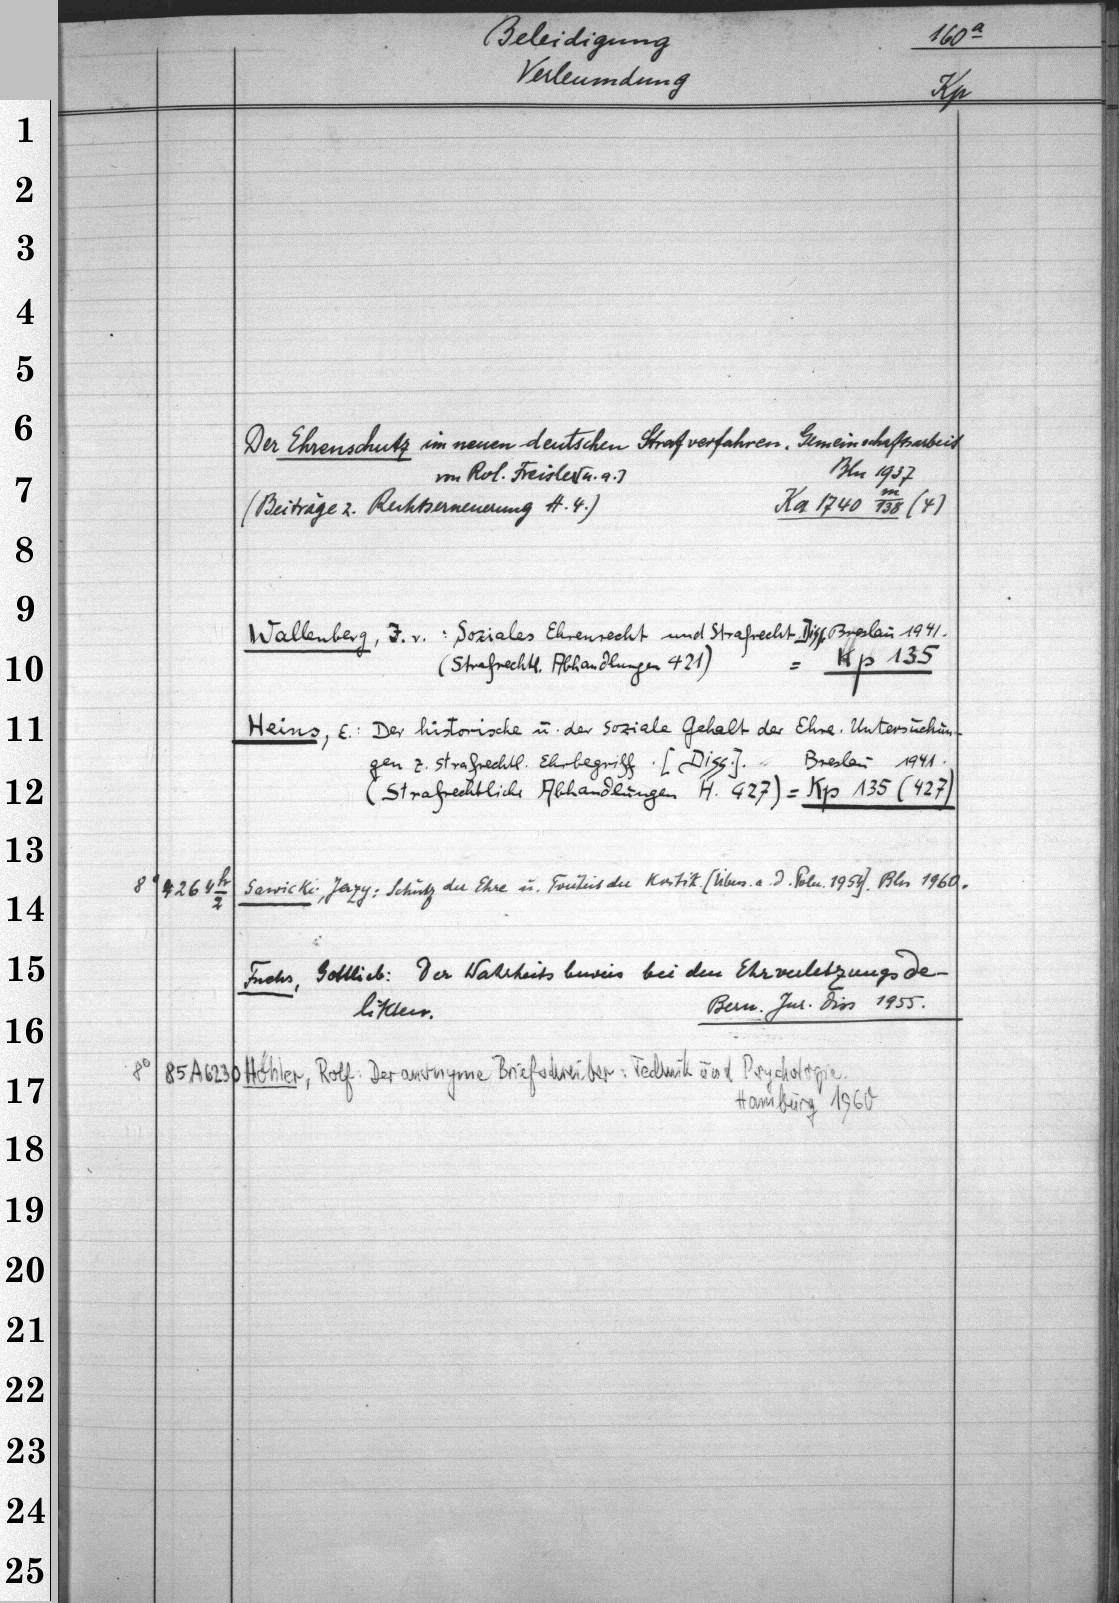 Beleidigung 160a
Verleumdung
Kp
1
2
3
4
5
6
Der Ehrenschutz im neuen deutschen Strafverfahren. Gemeinschaftsarbeit
von Rol. Freisler [u. a.] Bln 1937
7
(Beiträge z. Rechtserneuerung H. 4.) Ka 1740 m/138 (4)
8
9
Wallenberg, J. v. : Soziales Ehrenrecht und Strafrecht. Diss. Breslau 1941.
10
(Strafrechtl. Abhandlungen 421) = Kp 135
11
Heins, E.: Der historische u. der soziale Gehalt der Ehre. Untersuchun-
gen z. strafrechtl. Ehrbegriff. [Diss.]. Breslau 1941.
12
(Strafrechtliche Abhandlungen H. 427) = Kp 135 (427)
13
8° 4264 Sawicki, Jerzy: Schutz der Ehre u. Freiheit der Kritik. [Übers. a. d. Poln. 1959]. Bln 1960.
14
15
Fuchs, Gottlieb: Der Wahrheitsbeweis bei den Ehrverletzungsde-
likten. Bern. Jur. Diss 1955.
16
8° 85A6230 Höhler, Rolf: Der anonyme Briefschreiber: Technik und Psychologie.
17
Hamburg 1960
18
19
20
21
22
23
24
25